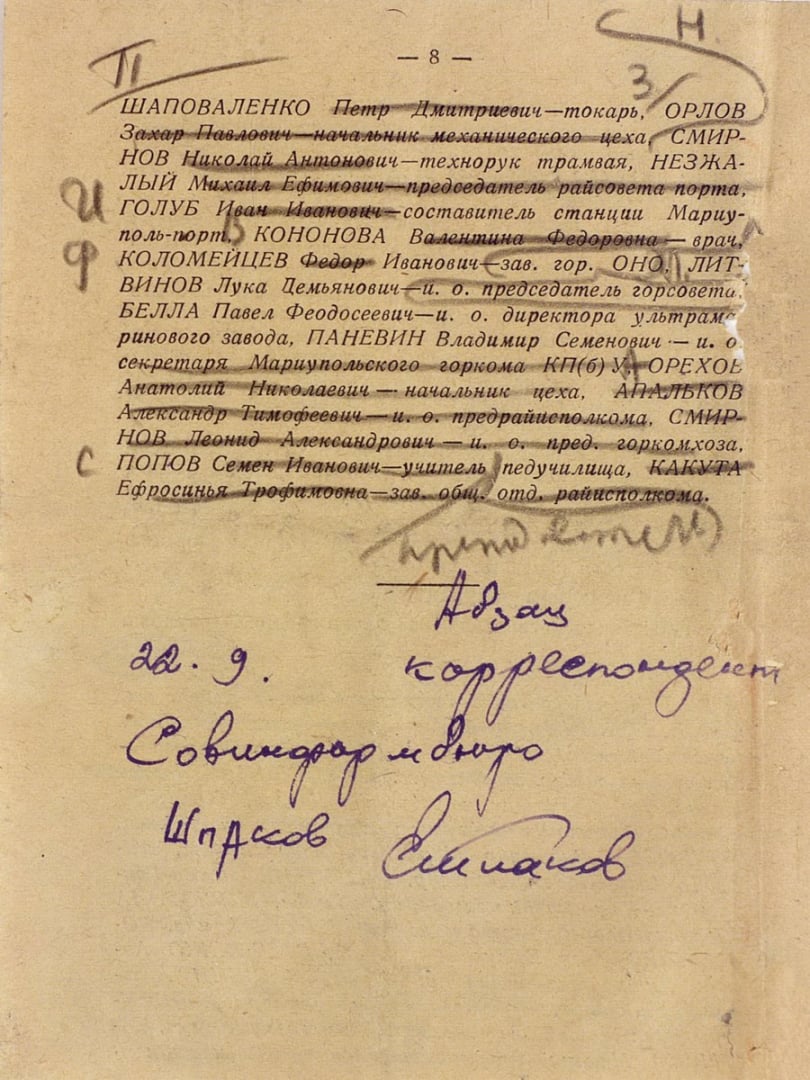 — 8 —
П
Н
З
ШАПОВАЛЕНКО Петр Дмитриевич—токарь, ОРЛОВ
Захар Павлович—начальник механического цеха, СМИР-
НОВ Николай Антонович—технорук трамвая, НЕЗЖА-
ЛЫЙ Михаил Ефимович—председатель райсовета порта,
И
ГОЛУБ Иван Иванович—составитель станции Мариу-
поль-порт, КОНОНОВА Валентина Федоровна—врач,
Ф
КОЛОМЕЙЦЕВ Федор Иванович—зав. гор. ОНО, ЛИТ-
ВИНОВ Лука Демьянович—и. о. председатель горсовета,
БЕЛЛА Павел Феодосеевич—и. о. директора ультрама-
ринового завода, ПАНЕВИН Владимир Семенович—и. о
секретаря Мариупольского горкома КП(б)У, ОРЕХОВ
Анатолий Николаевич—начальник цеха, АПАЛЬКОВ
Александр Тимофеевич—и. о. предрайисполкома, СМИР-
НОВ Леонид Александрович—и. о. пред. горкомхоза,
С
ПОПОВ Семен Иванович—учитель педучилища, КАКУТА
Ефросинья Трофимовна—зав. общ. отд. райисполкома.
Абзац
22. 9. корреспондент
Совинформбюро
Шпаков Ешпаков